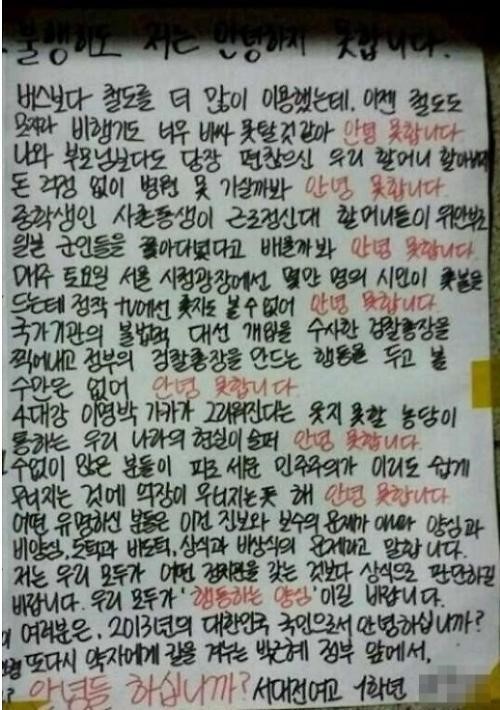 불행히도 저는 안녕하지 못합니다.
버스보다 철도를 더 많이 이용했는데, 이젠 철도도
모자라 비행기도 너무 비싸 못탈것 같아 안녕 못합니다
나와 부모님보다도 당장 편찮으신 우리 할머니 할아버지
돈 걱정 없이 병원 못 가실까봐 안녕 못합니다.
중학생인 사촌동생이 근로정신대 할머니들이 위안부로
일본 군인들을 쫓아다녔다고 배울까봐 안녕 못합니다.
매주 토요일 서울 시청광장에선 몇만 명의 시민이 촛불을
드는데 정작 tv에선 촛자도 볼 수 없어 안녕 못합니다
국가기관의 불법적 대선 개입을 수사한 검찰총장을
찍어내고 정부의 검찰총장을 만드는 행동을 두고 볼
수만은 없어 안녕 못합니다.
4대강 이명박 가카가 그리워진다는 웃지 못할 농담이
통하는 우리 나라의 현실이 슬퍼 안녕 못합니다.
수없이 많은 분들이 피로 세운 민주주의가 이리도 쉽게
무너지는 것에 억장이 무너지는듯 해 안녕 못합니다
어떤 유명하신 분들은 이건 진보와 보수의 문제가 아니라 양심과
비양심, 도덕과 비도덕, 상식과 비상식의 문제라고 말합니다.
저는 우리 모두가 어떤 정치관을 갖는 것보다 상식으로 판단하길
바랍니다. 우리 모두가 '행동하는 양심'이길 바랍니다.
여러분은, 2013년의 대한민국 국민으로서 안녕하십니까?
또다시 약자에게 칼을 겨누는 박근혜 정부 앞에서,
안녕들 하십니까? 서대전여고 1학년